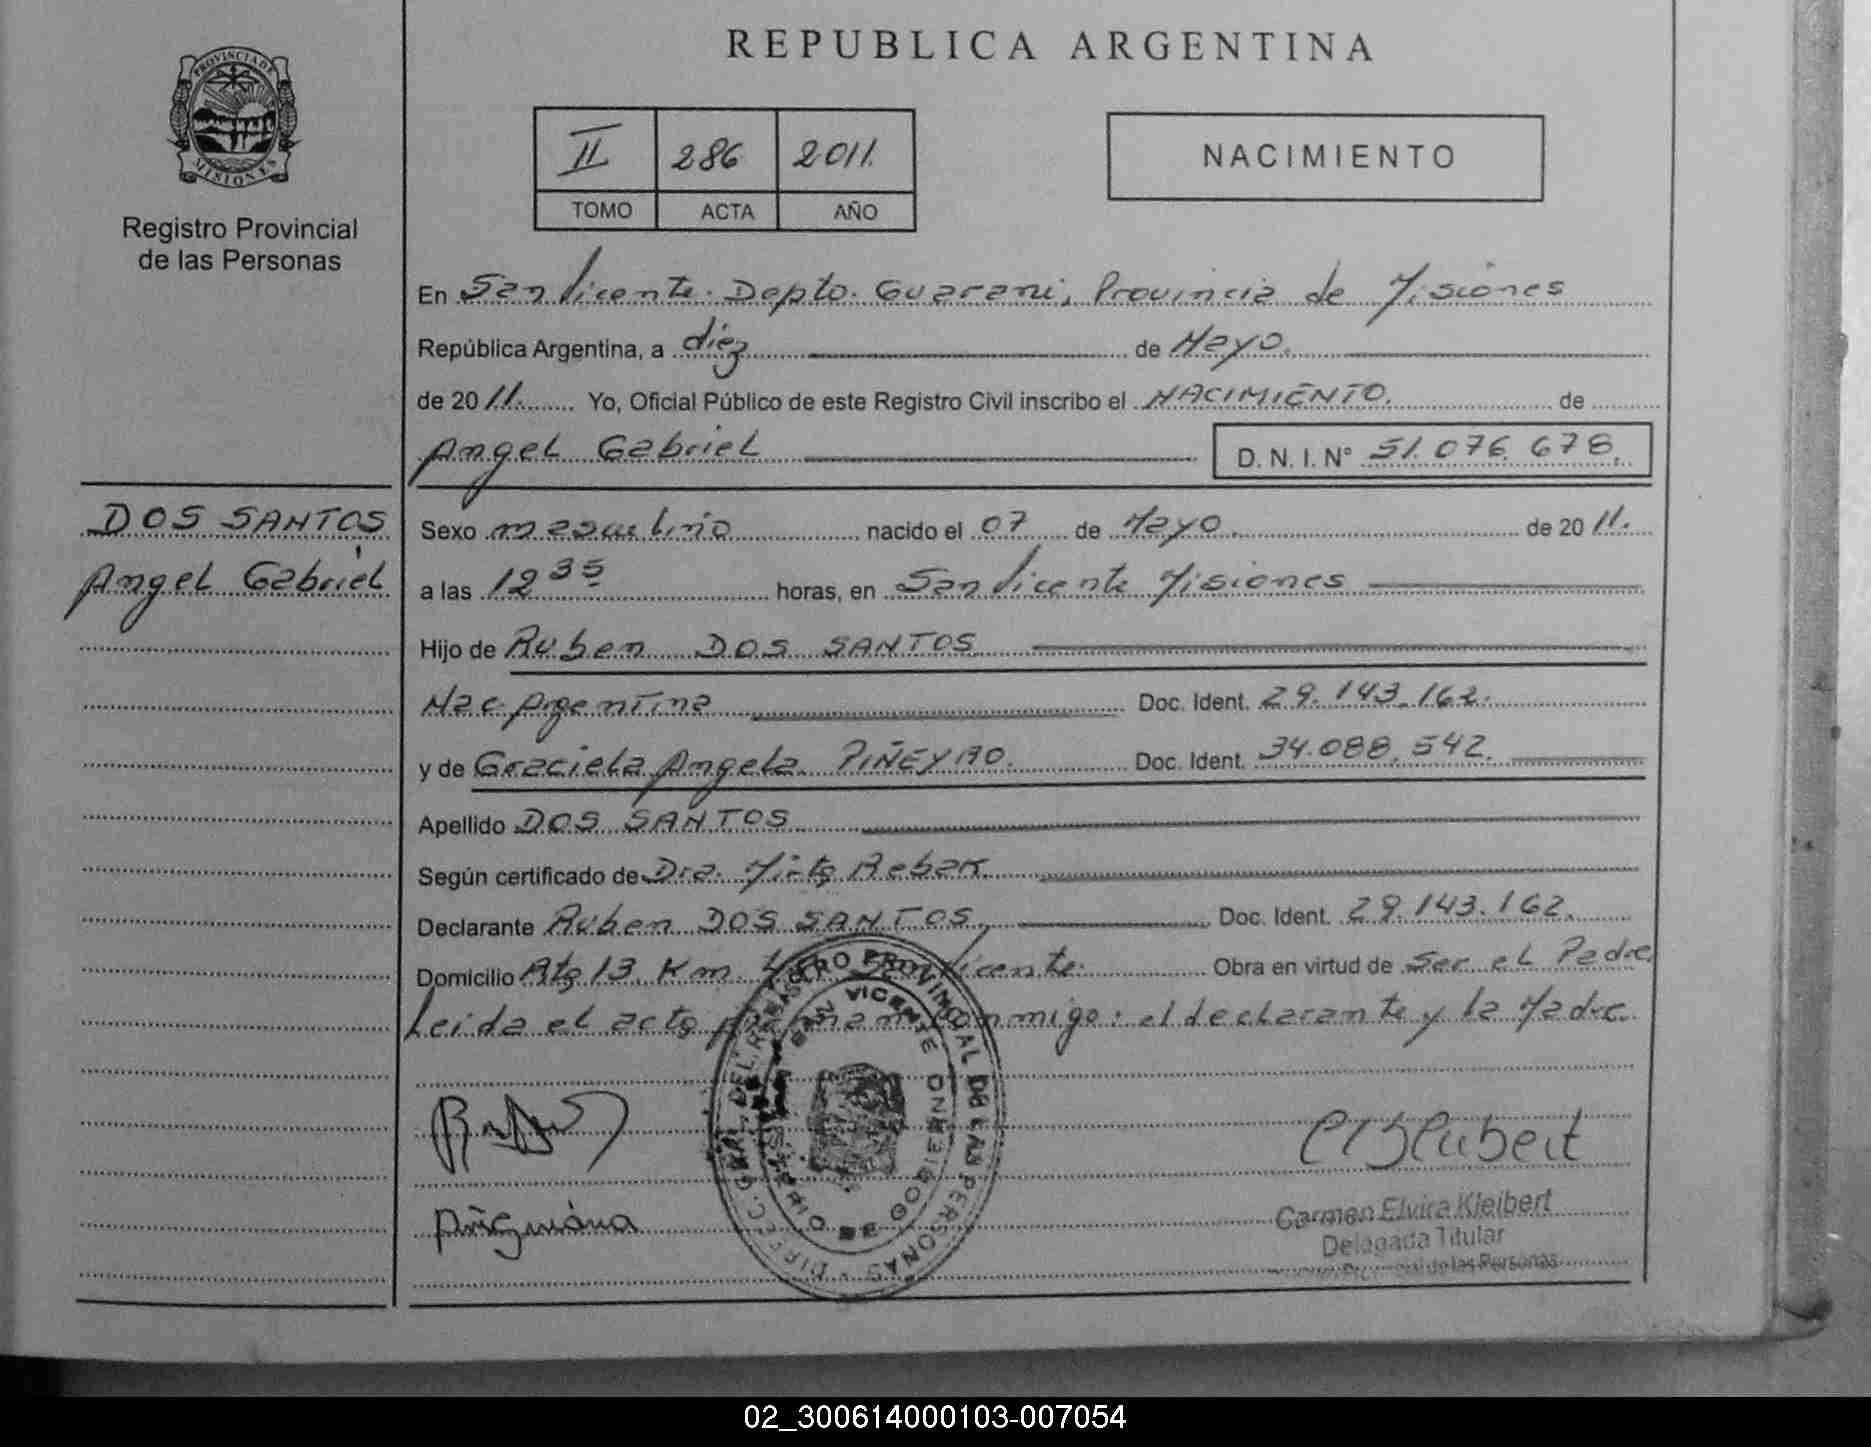 PROVINCIA DE
MISIONES
Registro Provincial
de las Personas
DOS SANTOS
Angel Gabriel
REPUBLICA ARGENTINA
II 286 2011.
TOMO ACTA AÑO
NACIMIENTO
En San Vicente. Depto. Guarani, Provincia de Misiones
República Argentina, a diez de Mayo.
de 2011. Yo, Oficial Público de este Registro Civil inscribo el NACIMIENTO. de
Angel Gabriel D. N. I. N° 51.076.678.
Sexo masculino nacido el 07 de Mayo. de 2011.
a las 12 35 horas, en San Vicente Misiones
Hijo de Ruben DOS SANTOS
Nac Argentina Doc. Ident. 29.143.162.
y de Graciela Angela PIÑEYRO. Doc. Ident. 34.088.542.
Apellido DOS SANTOS
Según certificado de Dra. Mirta
Declarante Ruben DOS SANTOS, Doc. Ident. 29.143.162.
Domicilio Rta 13 Km San Vicente. Obra en virtud de Ser el Padre
Leida el acta firman conmigo: el declarante y la Madre.
DIREC. GRAL. DEL REGISTRO PROVINCIAL DE LAS PERSONAS
SAN VICENTE
MINISTERIO DE GOBIERNO
Carmen Elvira Kleibert
Delegada Titular
de las Personas
02_300614000103-007054